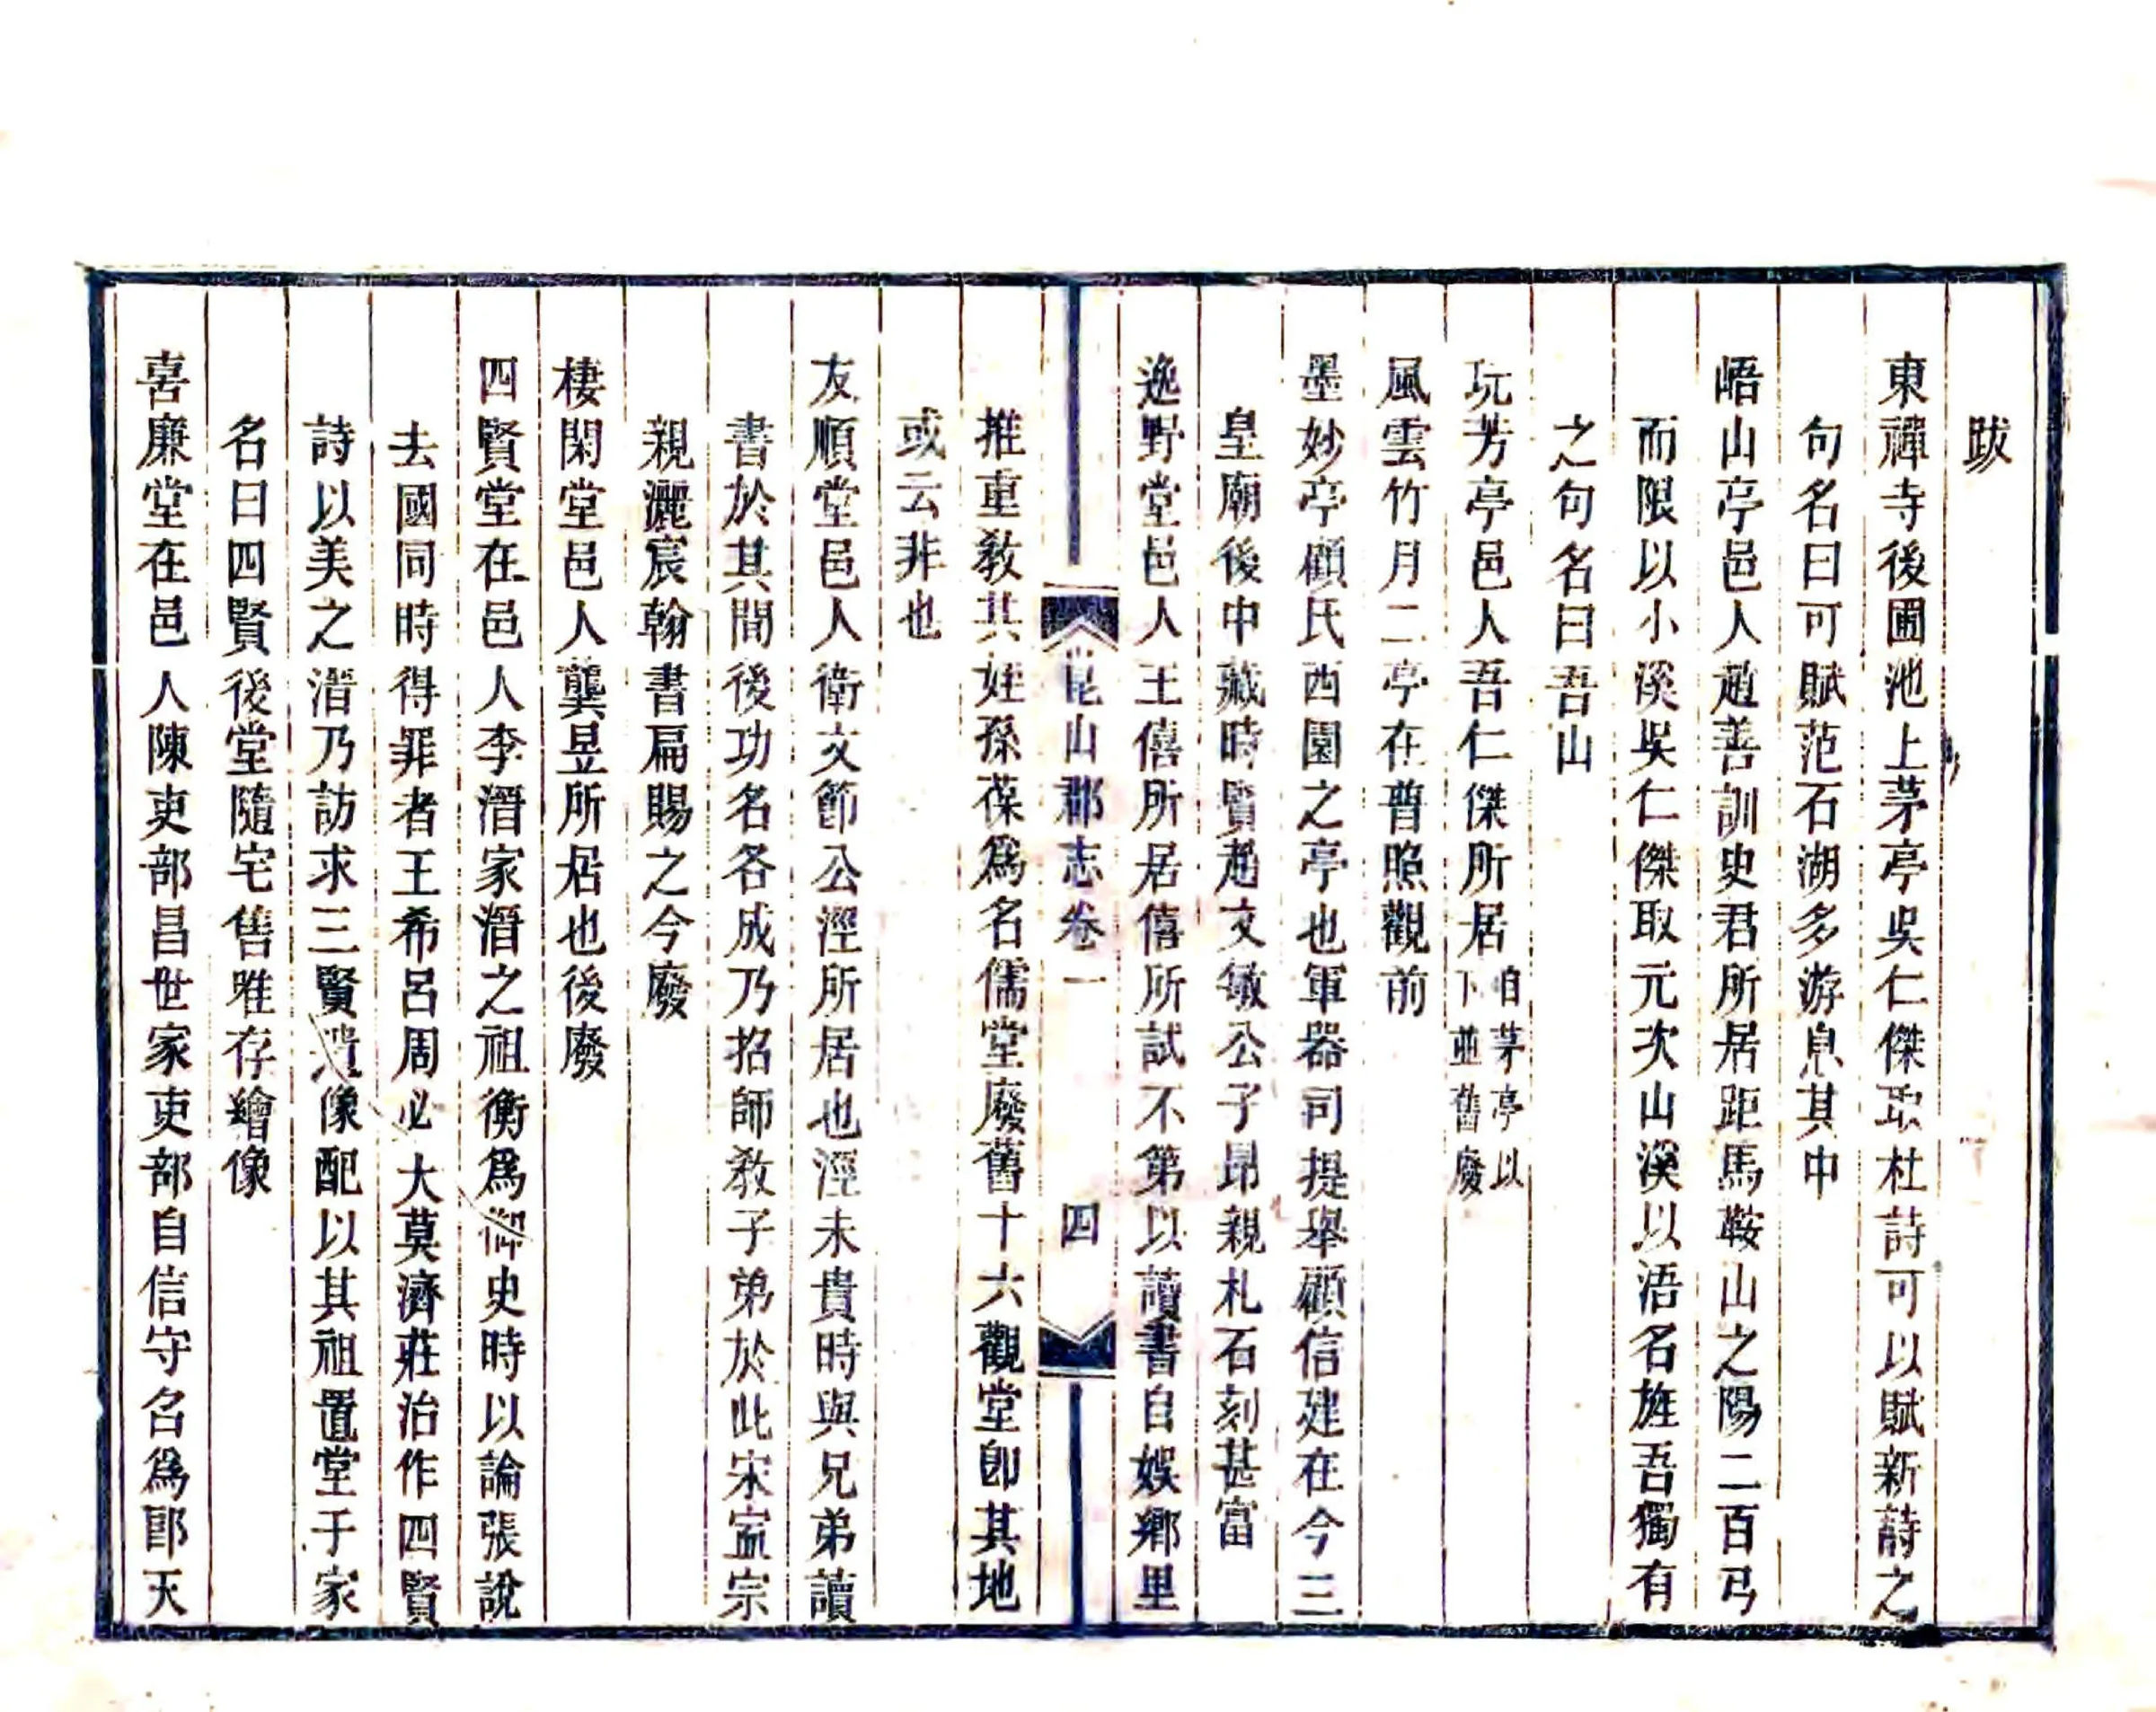 跋
東禪寺後圃池上茅亭吳仁傑取杜詩可以賦新詩之
句名曰可賦范石湖多游息其中
峿山亭邑人趙善訓史君所居距馬鞍山之陽二百弓
而限以小溪吳仁傑取元次山溪以浯名旌吾獨有
之句名曰吾山
玩芳亭邑人吾仁傑所居自茅亭以
下並舊廢
風雲竹月二亭在普照觀前
墨妙亭顧氏西園之亭也軍器司提舉顧信建在今三
皇廟後中藏時賢趙文敏公子昂親札石刻甚富
逸野堂邑人王僖所居僖所試不第以讀書自娛鄉里
昆山郡志卷一 四
推重敎其姪孫葆爲名儒堂廢舊十六觀堂卽其地
或云非也
友順堂邑人衛文節公涇所居也涇未貴時與兄弟讀
書於其間後功名各成乃招師敎子弟於此宋寍宗
親灑宸翰書扁賜之今廢
棲閑堂邑人龔昱所居也後廢
四賢堂在邑人李潛家潛之祖衡爲御史時以論張說
去國同時得罪者王希呂周必大莫濟莊治作四賢
詩以美之潛乃訪求三賢遺像配以其祖置堂于家
名曰四賢後堂隨宅售唯存繪像
喜廉堂在邑人陳吏部昌世家吏部自信守召爲郎天